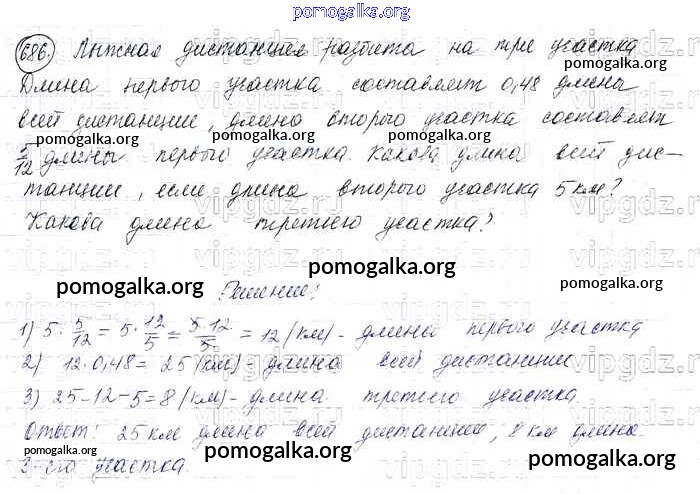 pomogalka.org
686. Лыжная дистанция разбита на три участка
Длина первого участка составляет 0,48 длины
всей дистанции, длина второго участка составляет
pomogalka.org pomogalka.org pomogalka.org
5/12 длины первого участка. Какова длина всей дис-
танции, если длина второго участка 5 км?
Какова длина третьего участка?
pomogalka.org pomogalka.org
Решение:
1) 5 · 5/12 = 5 · 12/5 = 5·12/5 = 12 (км) - длина первого участка
2) 12 · 0,48 = 25 (км) - длина всей дистанции
3) 25-12-5=8 (км) - длина третьего участка.
Ответ: 25 км длина всей дистанции, 8 км длина
pomogalka.org pomogalka.org
3-его участка.
pomogalka.org
vipgdz.ru